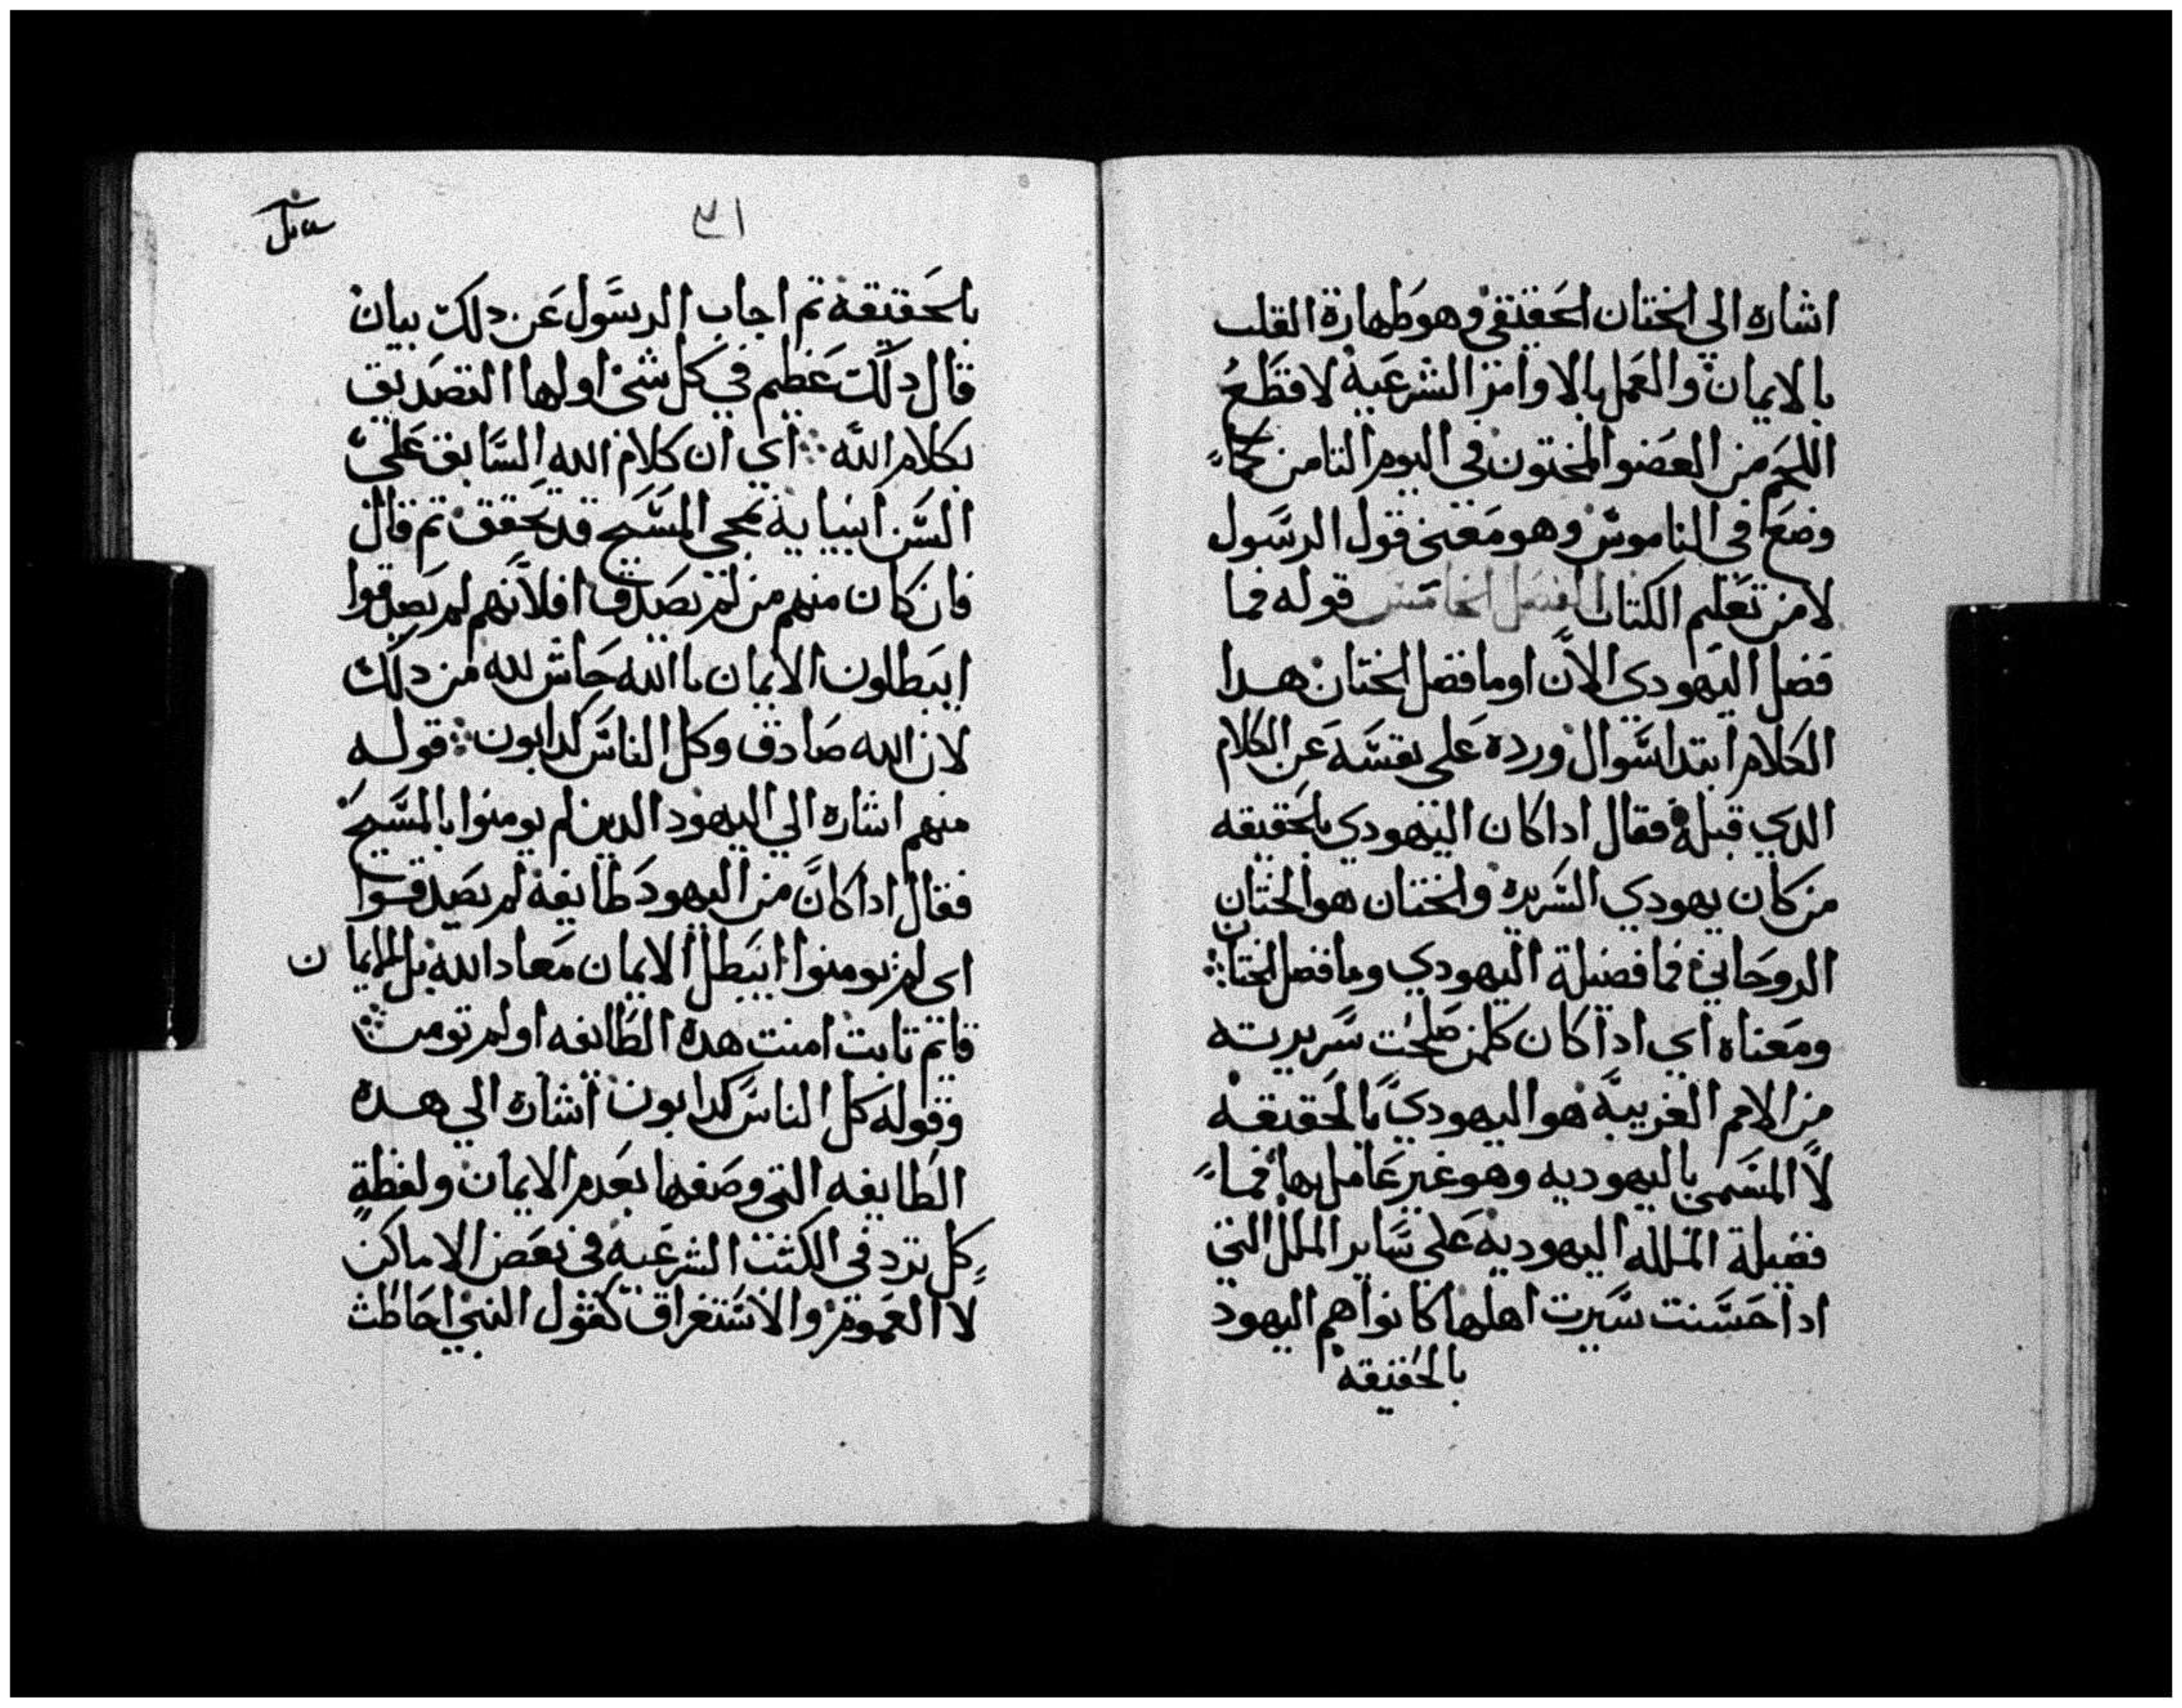 اشاره الي الختان الحقيقي وهو طهارة القلب
بالايمان والعمل بالاوامر الشرعية لا قطع
اللحم من العضو المختون في اليوم الثامن كما
وضع في الناموس وهو معني قول الرسول
لا من تعليم الكتاب الفصل الخامس قوله فما
فضل اليهودي الان او ما فضل الختان هدا
الكلام ابتدا سوال ورده علي نفسه عن الكلام
الدي قبله فقال ادا كان اليهودي بلحقيقه
من كان يهودي السريره والختان هو الختان
الروحاني فما فضيلة اليهودي وما فضل الختان
ومعناه اي ادا كان كلمن صلحت سريرته
من الامم الغريبه هو اليهودي بالحقيقه
لا المتسمي باليهوديه وهو غير عامل بها فما
فضيلة المله اليهوديه علي ساير الملل التي
ادا حسنت سيرت اهلها كانوا هم اليهود
بالحقيقه
٣١
بالحقيقة تم اجاب الرسول عن دلك بيان
قال دلك عظيم في كل شي اولها التصديق
بكلام الله اي ان كلام الله السابق علي
السن انبيايه بمجي المسيح قد تحقق تم قال
فان كان منهم من لم يصدق افلانهم لم يصدقوا
ايبطلون الايمان باالله حاش لله من دلك
لان الله صادق وكل الناس كدابون قوله
منهم اشاره الي اليهود الدين لم يومنوا بالمسيح
فقال ادا كان من اليهود طايفة لم يصدقوا
اي لم يومنوا ايبطل الايمان معاد الله بل الايمان
قايم تابت امنت هده الطايفه او لم تومن
وقوله كل الناس كدابون اشاره الي هده
الطايفه التي وصفها بعدم الايمان ولفظة
كل ترد في الكتب الشرعيه في بعض الاماكن
لا العموم والاستغراق كقول النبي احاطت